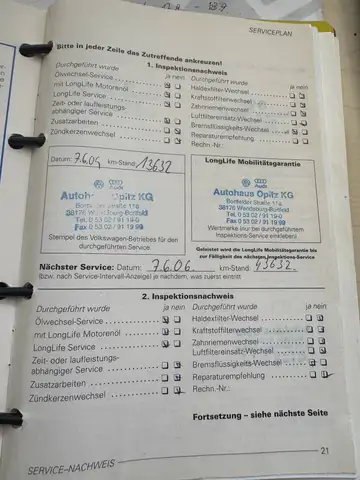 SERVICEPLAN
Bitte in jeder Zeile das Zutreffende ankreuzen!
1. Inspektionsnachweis
Durchgeführt wurde ja nein
Ölwechsel-Service
mit LongLife Motorenöl
LongLife Service
Zeit- oder laufleistungs-
abhängiger Service
Zusatzarbeiten
Zündkerzenwechsel
Durchgeführt wurde ja nein
Haldexfilter-Wechsel
Kraftstofffilterwechsel
Zahnriemenwechsel
Luftfiltereinsatz-Wechsel
Bremsflüssigkeits-Wechsel
Reparaturempfehlung
Rechn.-Nr.:
Datum: 7.6.04 km-Stand: 13632
Audi
Autohaus Opitz KG
Bortfelder Straße 17a
38176 Wendeburg-Bortfeld
Tel. 0 53 02 / 91 19 0
Fax 0 53 02 / 91 19 99
Stempel des Volkswagen-Betriebes für den
durchgeführten Service.
LongLife Mobilitätsgarantie
Audi
Autohaus Opitz KG
Bortfelder Straße 17a
38176 Wendeburg-Bortfeld
Tel. 0 53 02 / 91 19 0
Fax 0 53 02 / 91 19 99
(Wertmarke nur bei durchgeführtem
Inspektions-Service einkleben).
Geleistet wird die LongLife Mobilitätsgarantie bis
zur Fälligkeit des nächsten Inspektions-Service
Nächster Service: Datum: 7.6.06 km-Stand: 43632
(bzw. nach Service-Intervall-Anzeige) je nachdem, was zuerst eintritt
2. Inspektionsnachweis
Durchgeführt wurde ja nein
Ölwechsel-Service
mit LongLife Motorenöl
LongLife Service
Zeit- oder laufleistungs-
abhängiger Service
Zusatzarbeiten
Zündkerzenwechsel
Durchgeführt wurde ja nein
Haldexfilter-Wechsel
Kraftstofffilterwechsel
Zahnriemenwechsel
Luftfiltereinsatz-Wechsel
Bremsflüssigkeits-Wechsel
Reparaturempfehlung
Rechn.-Nr.:
Fortsetzung – siehe nächste Seite
21
SERVICE–NACHWEIS